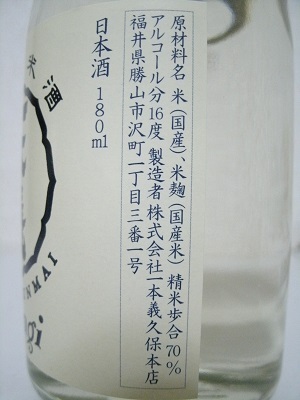 原材料名 米(国産)、米麹(国産米) 精米歩合70%
アルコール分16度 製造者 株式会社一本義久保本店
福井県勝山市沢町一丁目三番一号
日本酒 180ml
酒
NMAI
gi